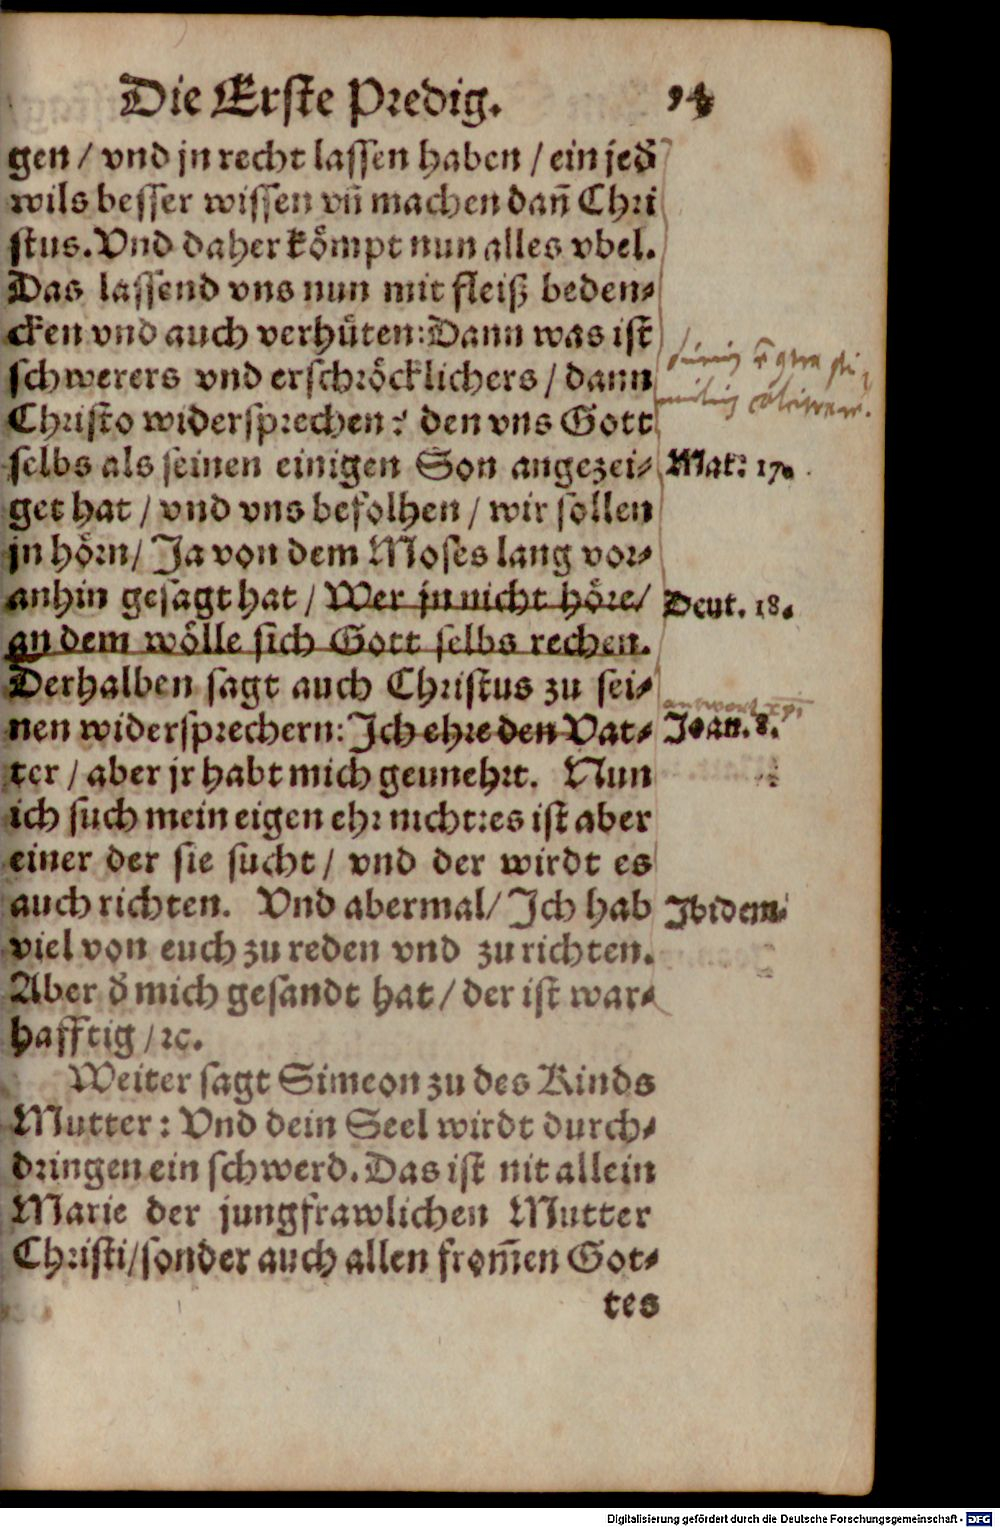 Die Erſte Predig. 94
gen / vnd jn recht laſſen haben / ein jed̃
wils beſſer wiſſen vñ machen dañ Chri
ſtus. Vnd daher koͤmpt nun alles vbel.
Das laſſend vns nun mit fleiß beden⸗
cken vnd auch verhuͤten: Dann was iſt
ſchwerers vnd erſchroͤcklichers / dann
Chriſto widerſprechen? den vns Gott
ſelbs als ſeinen einigen Son angezei⸗
Mat. 17.
get hat / vnd vns befolhen / wir ſollen
jn hoͤrn / Ja von dem Moſes lang vor⸗
anhin geſagt hat / Wer jn nicht hoͤre /
Deut. 18.
an dem woͤlle ſich Gott ſelbs rechen.
Derhalben ſagt auch Chriſtus zu ſei⸗
antwort xpi
nen widerſprechern: Ich ehre den Vat⸗
Joan. 8.
ter / aber jr habt mich geunehrt. Nun
ich ſuch mein eigen ehr nicht: es iſt aber
einer der ſie ſucht / vnd der wirdt es
auch richten. Vnd abermal / Ich hab
Ibidem.
viel von euch zu reden vnd zu richten.
Aber d̃ mich geſandt hat / der iſt war⸗
hafftig / ꝛc.
Weiter ſagt Simeon zu des Kinds
Mutter: Vnd dein Seel wirdt durch⸗
dringen ein ſchwerd. Das iſt nit allein
Marie der jungfrawlichen Mutter
Chriſti / ſonder auch allen from̃en Got⸗
tes
Digitalisierung gefördert durch die Deutsche Forschungsgemeinschaft - DFG